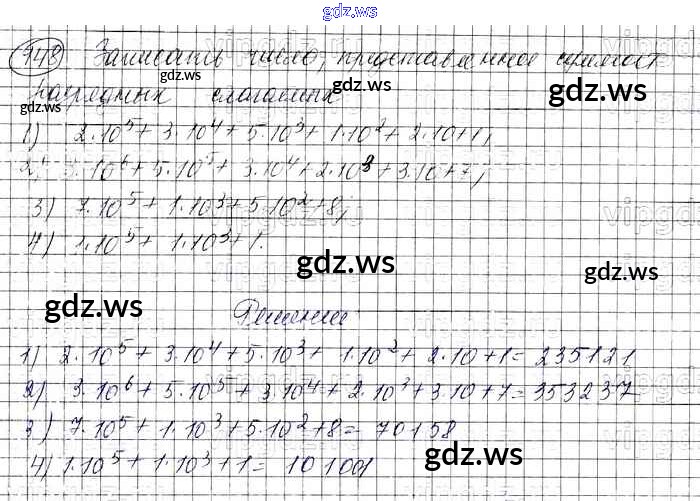 gdz.ws
748) Записать число, представленное суммой
разрядных слагаемых
gdz.ws
gdz.ws
gdz.ws
1) 2·10⁵ + 3·10⁴ + 5·10³ + 1·10² + 2·10 + 1,
2) 3·10⁶ + 5·10⁵ + 3·10⁴ + 2·10³ + 3·10 + 7,
3) 7·10⁵ + 1·10³ + 5·10² + 8,
4) 1·10⁵ + 1·10³ + 1.
gdz.ws
gdz.ws
gdz.ws
Решение
1) 2·10⁵ + 3·10⁴ + 5·10³ + 1·10² + 2·10 + 1 = 235121
2) 3·10⁶ + 5·10⁵ + 3·10⁴ + 2·10³ + 3·10 + 7 = 353237
3) 7·10⁵ + 1·10³ + 5·10² + 8 = 70158
4) 1·10⁵ + 1·10³ + 1 = 101001
gdz.ws